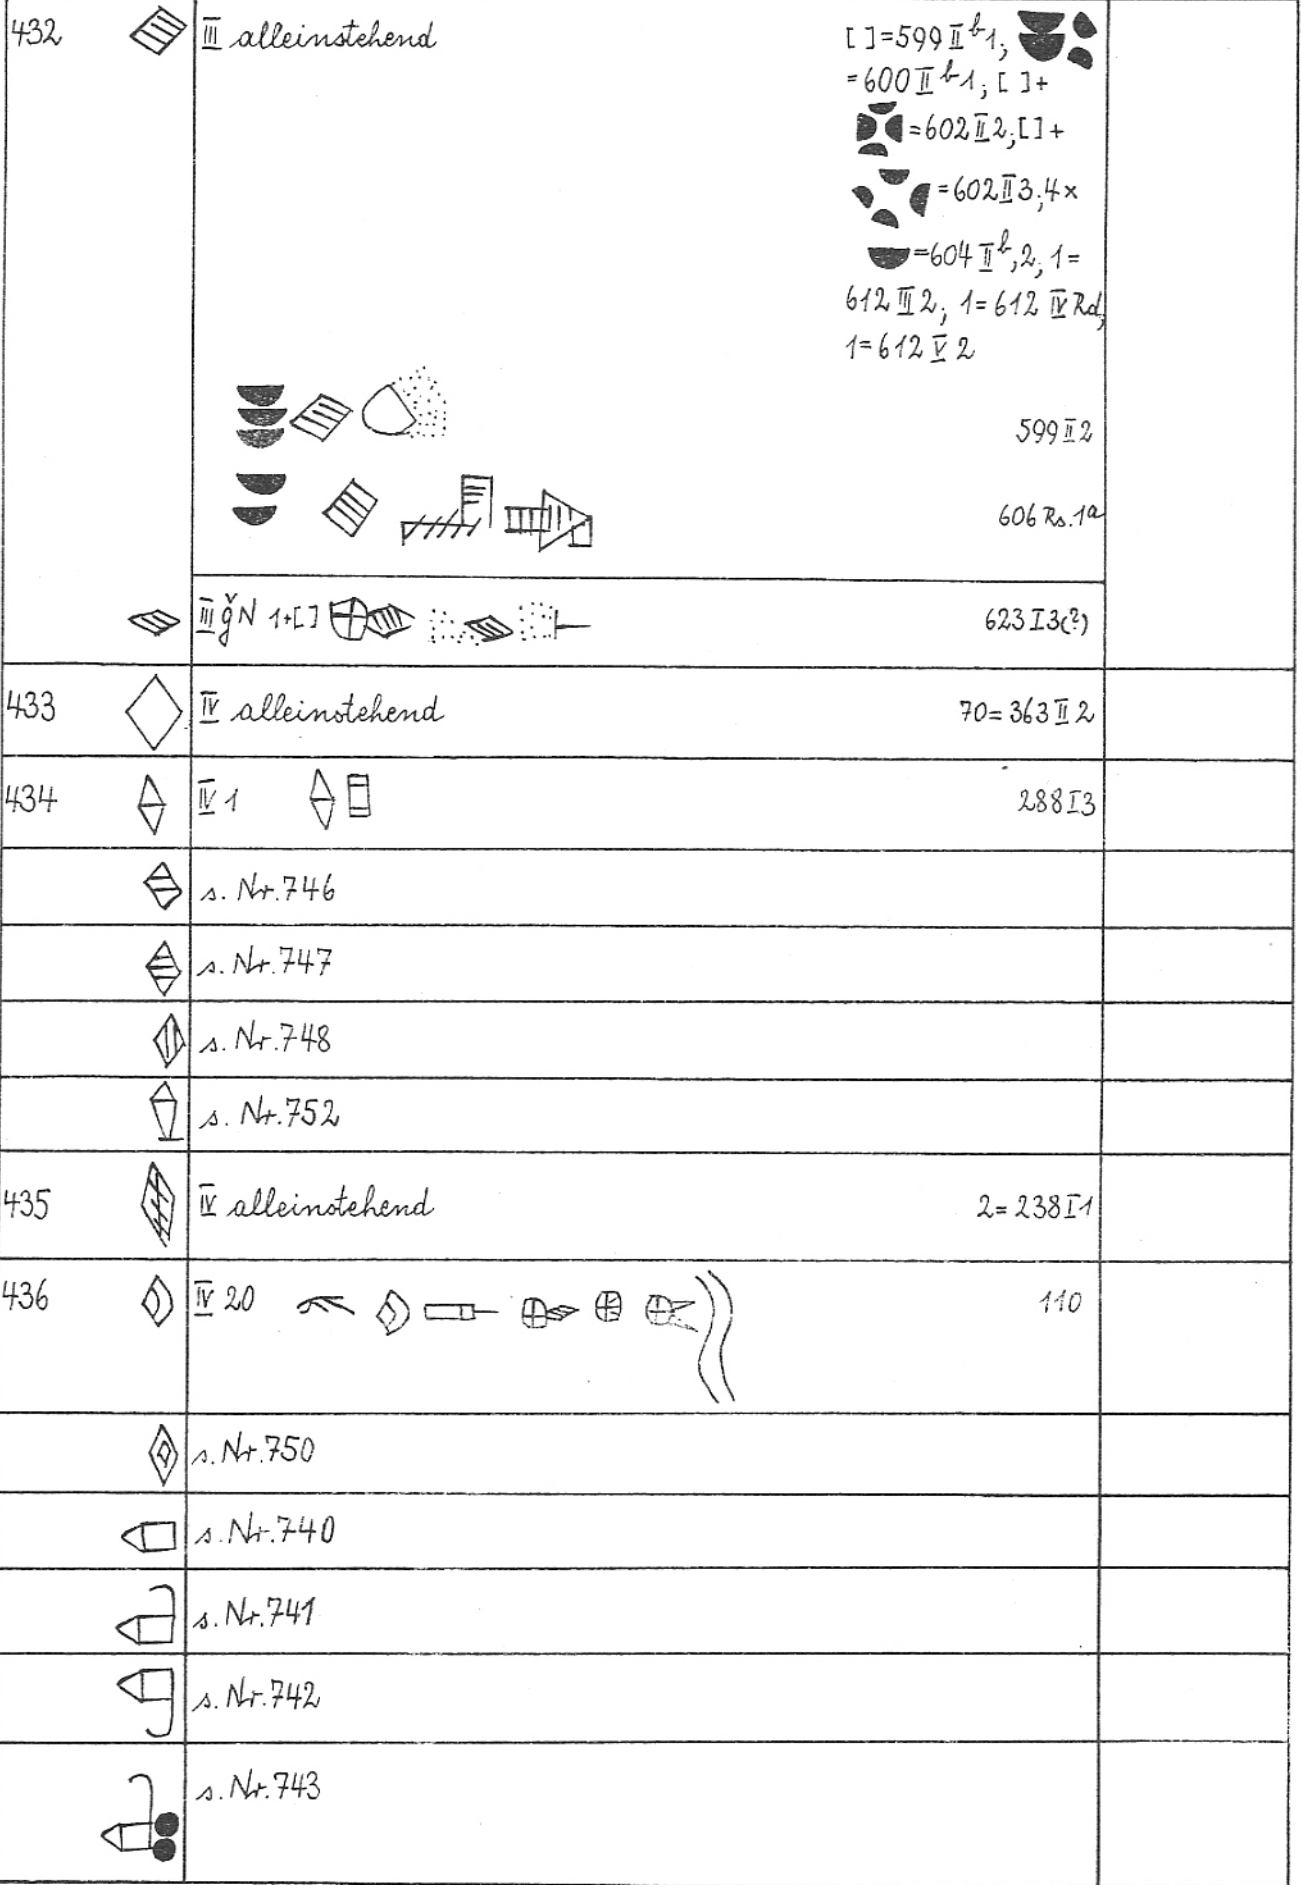 432 III alleinstehend [ ]=599 II b 1;
=600 II b 1; [ ]+
=602 II 2; [ ]+
=602 II 3; 4×
=604 II b, 2; 1=
612 III 2; 1=612 IV Rd;
1=612 V 2
599 II 2
606 Rs. 1a
III ǧN 1+[ ] 623 I 3(?)
433 IV alleinstehend 70=363 II 2
434 IV 1 288 I 3
s. Nr. 746
s. Nr. 747
s. Nr. 748
s. Nr. 752
435 IV alleinstehend 2=238 I 1
436 IV 20 110
s. Nr. 750
s. Nr. 740
s. Nr. 741
s. Nr. 742
s. Nr. 743